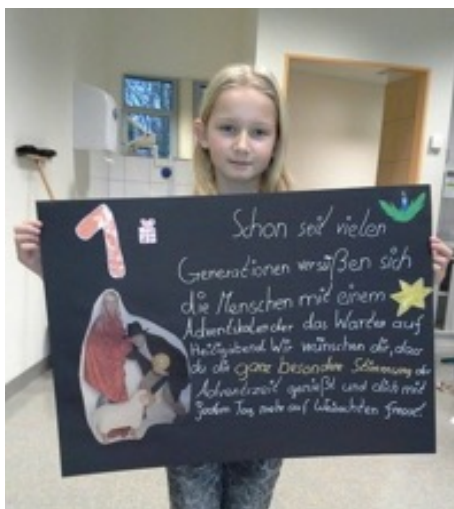 1
Schon seit vielen
Generationen versüßen sich
die Menschen mit einem
Adventskalender das Warten auf
Heiligabend. Wir wünschen dir, dass
du die ganz besondere Stimmung der
Adventszeit genießt und dich mit
jedem Tag mehr auf Weihnachten freust.